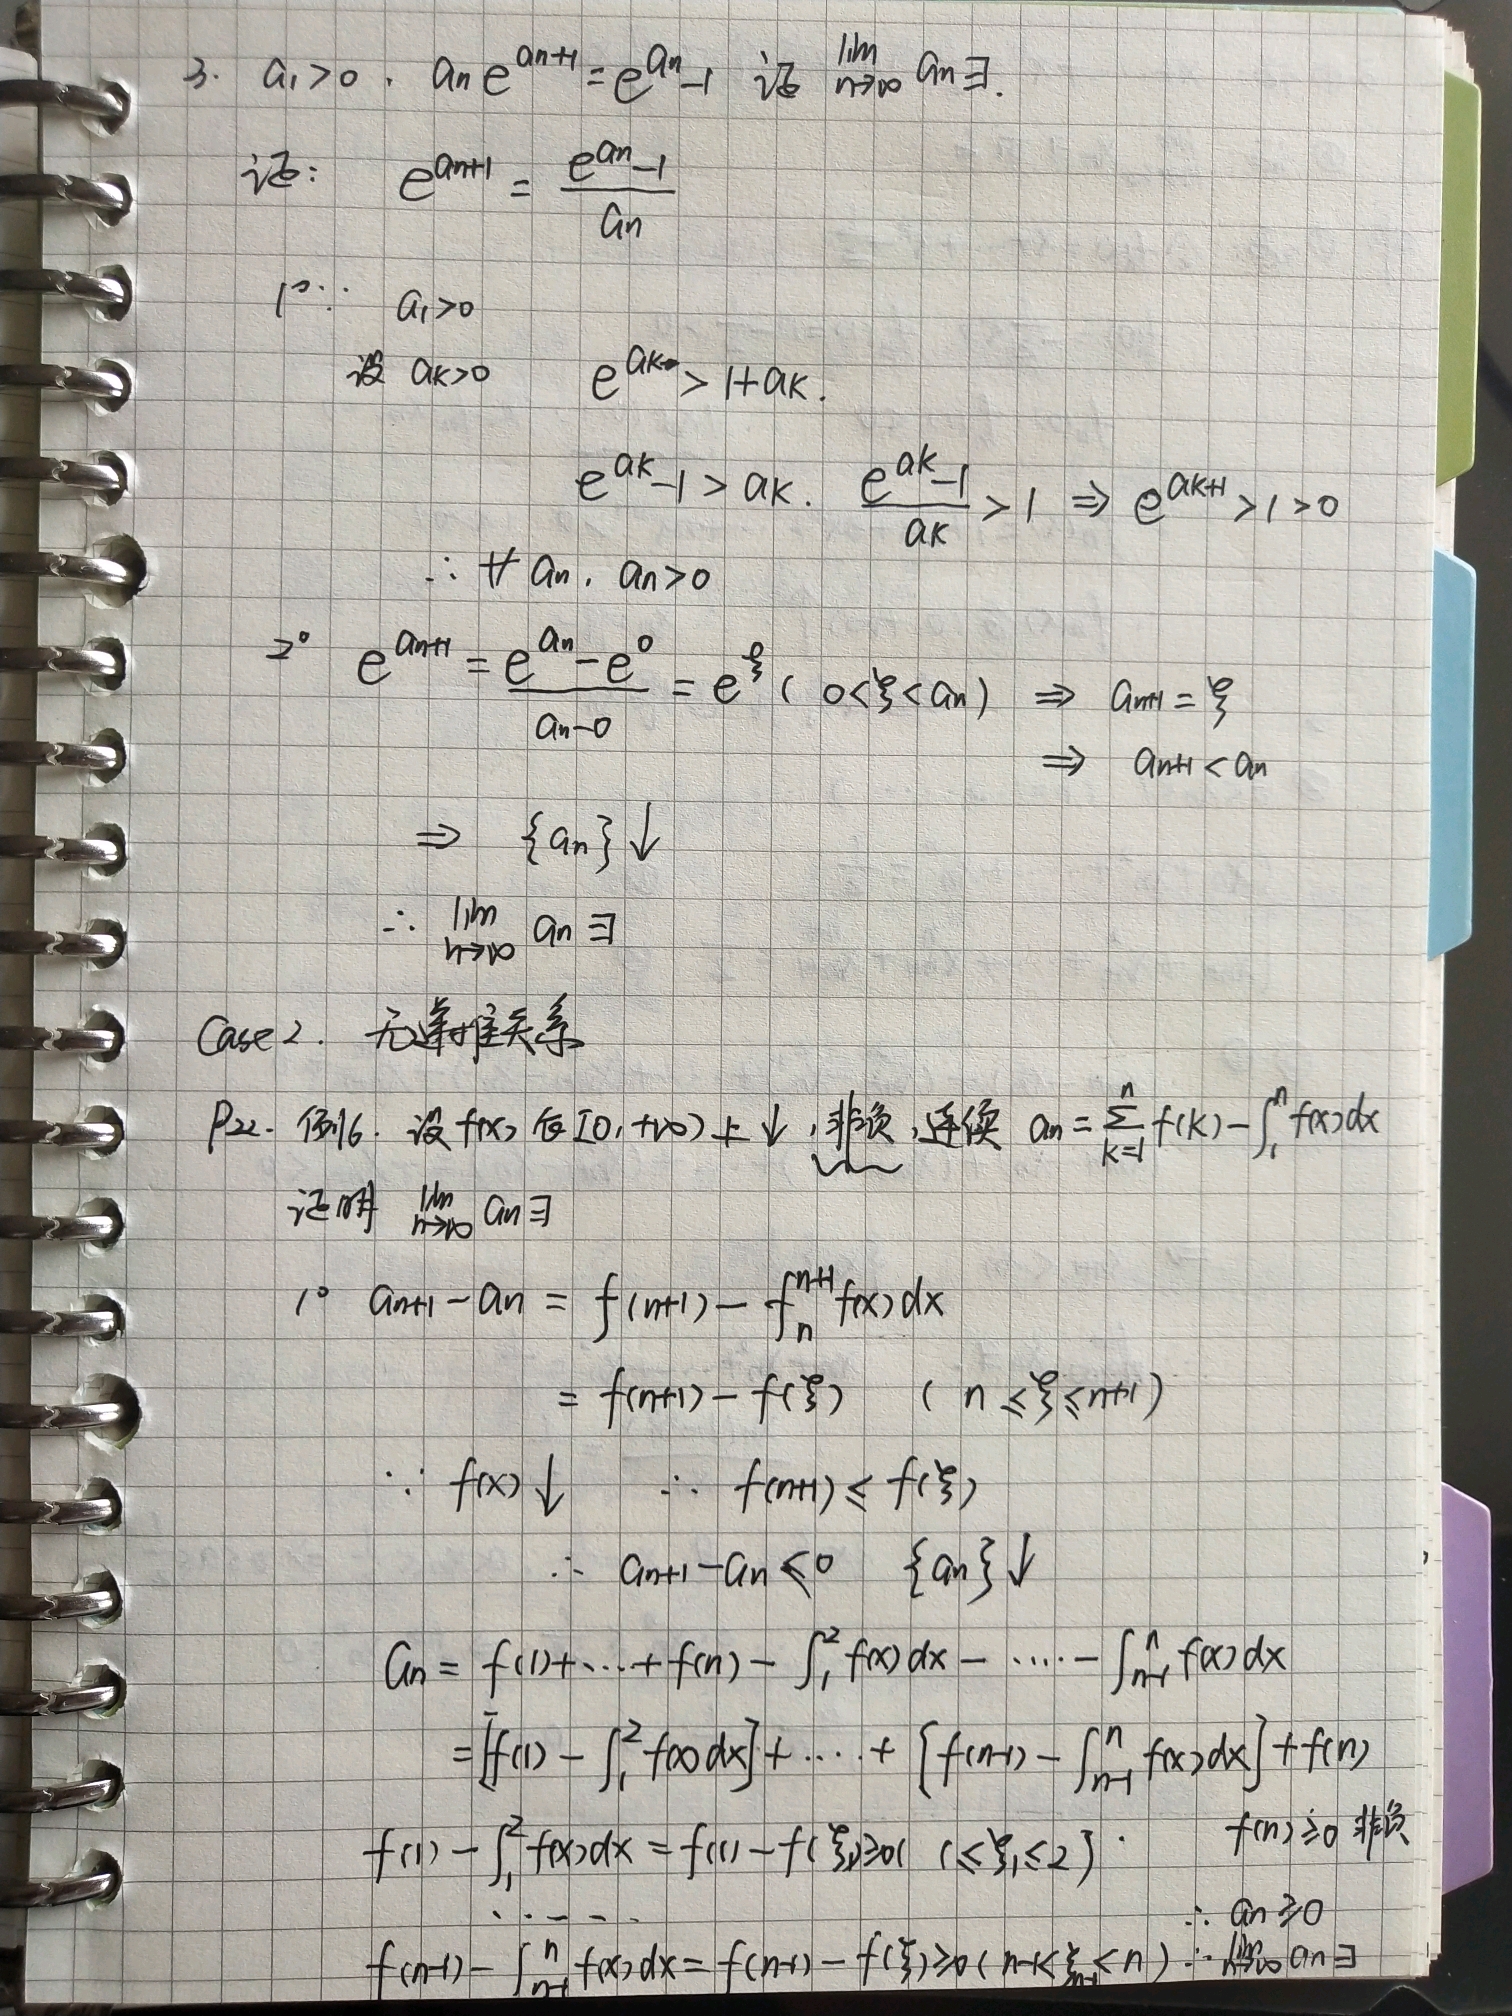 3. a₁>0. aₙe^(aₙ₊₁)=e^(aₙ)-1 证 lim(n→∞) aₙ∃.
证: e^(aₙ₊₁) = (e^(aₙ)-1)/aₙ
1° ∵ a₁>0
设 aₖ>0 e^(aₖ) > 1+aₖ.
e^(aₖ)-1 > aₖ. (e^(aₖ)-1)/aₖ > 1 ⇒ e^(aₖ₊₁) >1>0
∴ ∀ aₙ. aₙ>0
2° e^(aₙ₊₁) = (e^(aₙ)-e⁰)/(aₙ-0) = e^ξ ( 0<ξ<aₙ) ⇒ aₙ₊₁=ξ
⇒ aₙ₊₁<aₙ
⇒ {aₙ}↓
∴ lim(n→∞) aₙ∃
Case 2. 无递推关系
P22. 例16. 设f(x)在[0,+∞)上↓,非负,连续 aₙ=∑(k=1→n) f(k)-∫₁ⁿf(x)dx
证明 lim(n→∞) aₙ∃
1° aₙ₊₁-aₙ = f(n+1)-∫ₙⁿ⁺¹f(x)dx
= f(n+1)-f(ξ) ( n≤ξ≤n+1)
∵ f(x)↓ ∴ f(n+1)≤f(ξ)
∴ aₙ₊₁-aₙ≤0 {aₙ}↓
aₙ= f(1)+…+f(n)-∫₁²f(x)dx-……-∫ₙ₋₁ⁿf(x)dx
=[f(1)-∫₁²f(x)dx]+……+[f(n-1)-∫ₙ₋₁ⁿf(x)dx]+f(n)
f(n)≥0 非负
f(1)-∫₁²f(x)dx=f(1)-f(ξ₁)≥0( 1≤ξ₁≤2).
……
∴ aₙ≥0
f(n-1)-∫ₙ₋₁ⁿf(x)dx=f(n-1)-f(ξ)≥0( n-1<ξₙ₋₁<n) ∴ lim(n→∞) aₙ∃